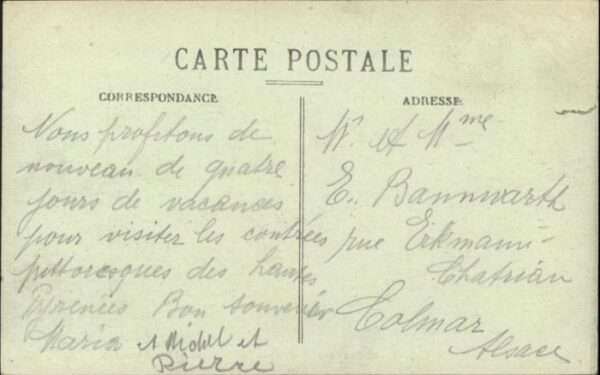 CARTE POSTALE
CORRESPONDANCE
Nous profitons de
nouveau de quatre
jours de vacances
pour visiter les contrées
pittoresques des hautes
Pyrenées Bon souvenir
Maria et Michel et
Pierre
ADRESSE
Mr et Mme
E. Bannwarth
rue Erkmann-
Chatrian
Colmar
Alsace